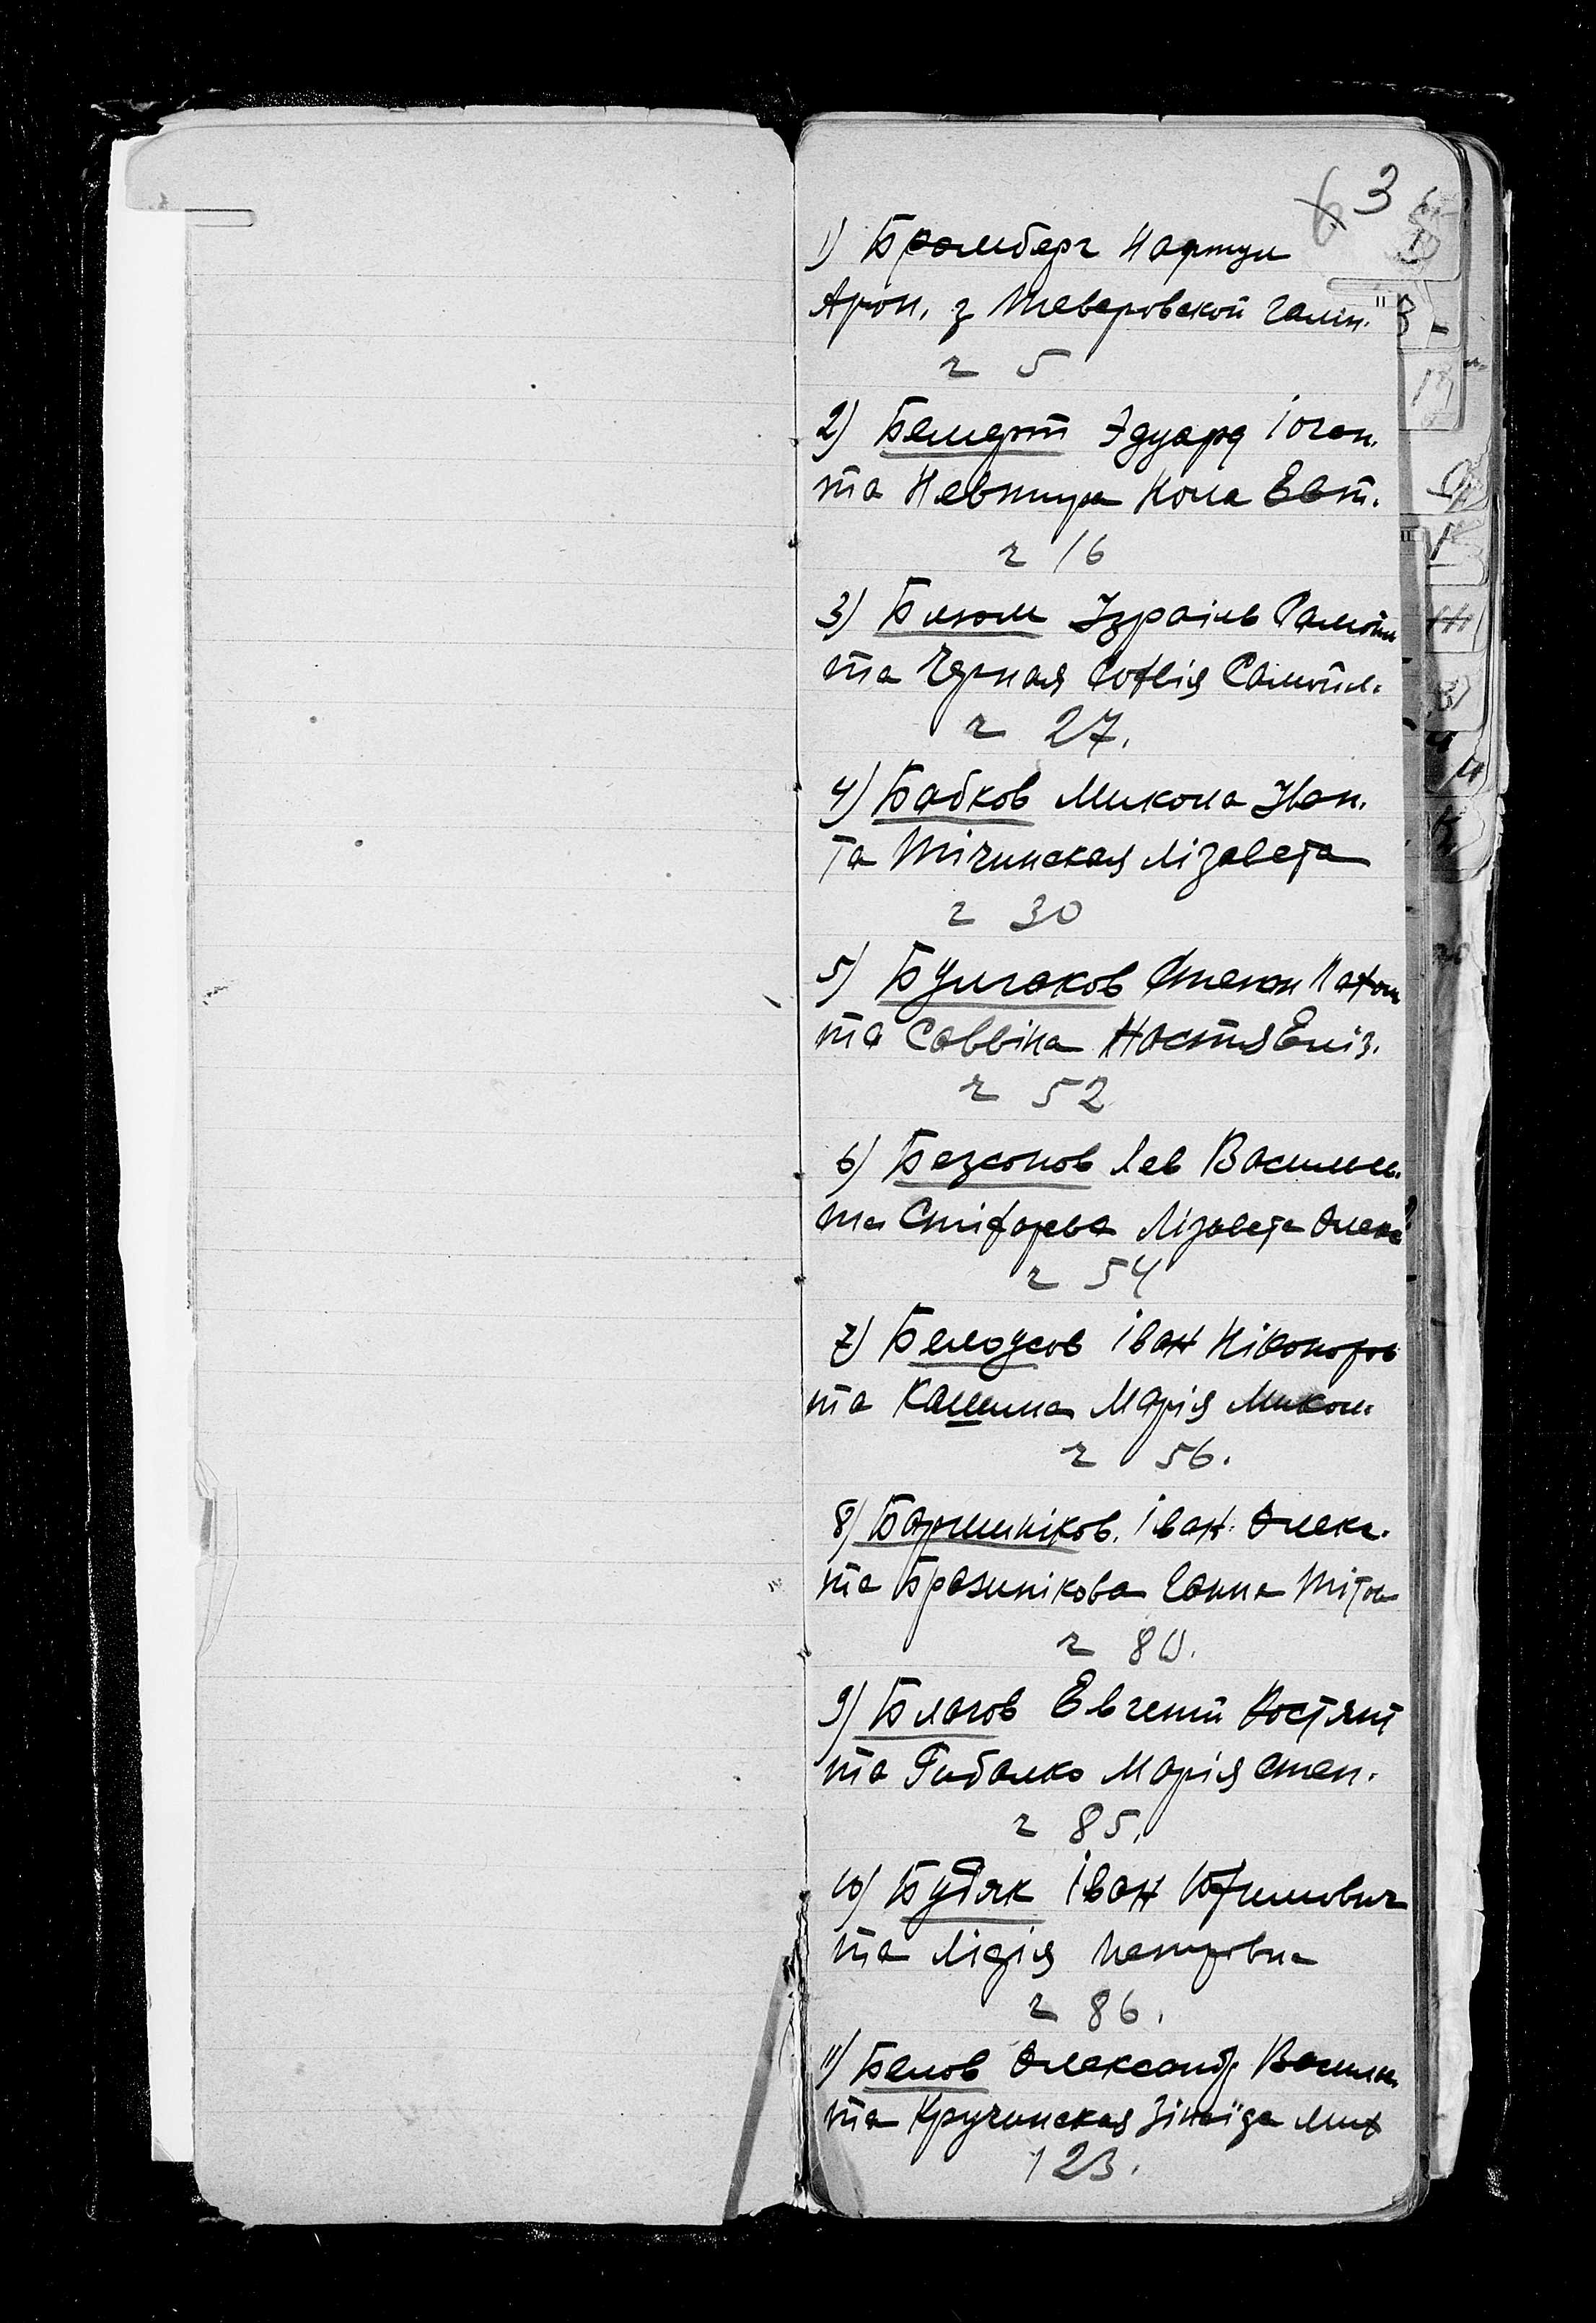 3
1) Бромберг Нартул
Арон, з Теверовской Галин.
ч 5
2) Бемерт Эдуард Іоган.
та Невтира Нона Евт.
ч 16
3) Блюм Ізраіль Самойл
та Черная Софія Самойл.
ч 27.
4) Бабков Микола Іван.
та Тічинская Лізавета
ч 30
5) Булгаков Степан Пахом
та Саввіна Настя Еліз.
ч 52
6) Безсонов Лев Васильев.
та Лізавета Олекс
ч 54
7) Белоусов Іван Ніканоров
та Кашина Марія Микол.
ч 56.
8) Баришніков. Іван. Олекс.
та Бразнікова Ганна Тітов
ч 80.
9) Благов Евгений Костянт
та Рибалко Марія Степ.
ч 85.
10) Будяк Іван Юхимович
та Лідія Петровна
ч 86.
11) Белов Олександр Васильев.
та Кручинская Зінаїда Мих
123.